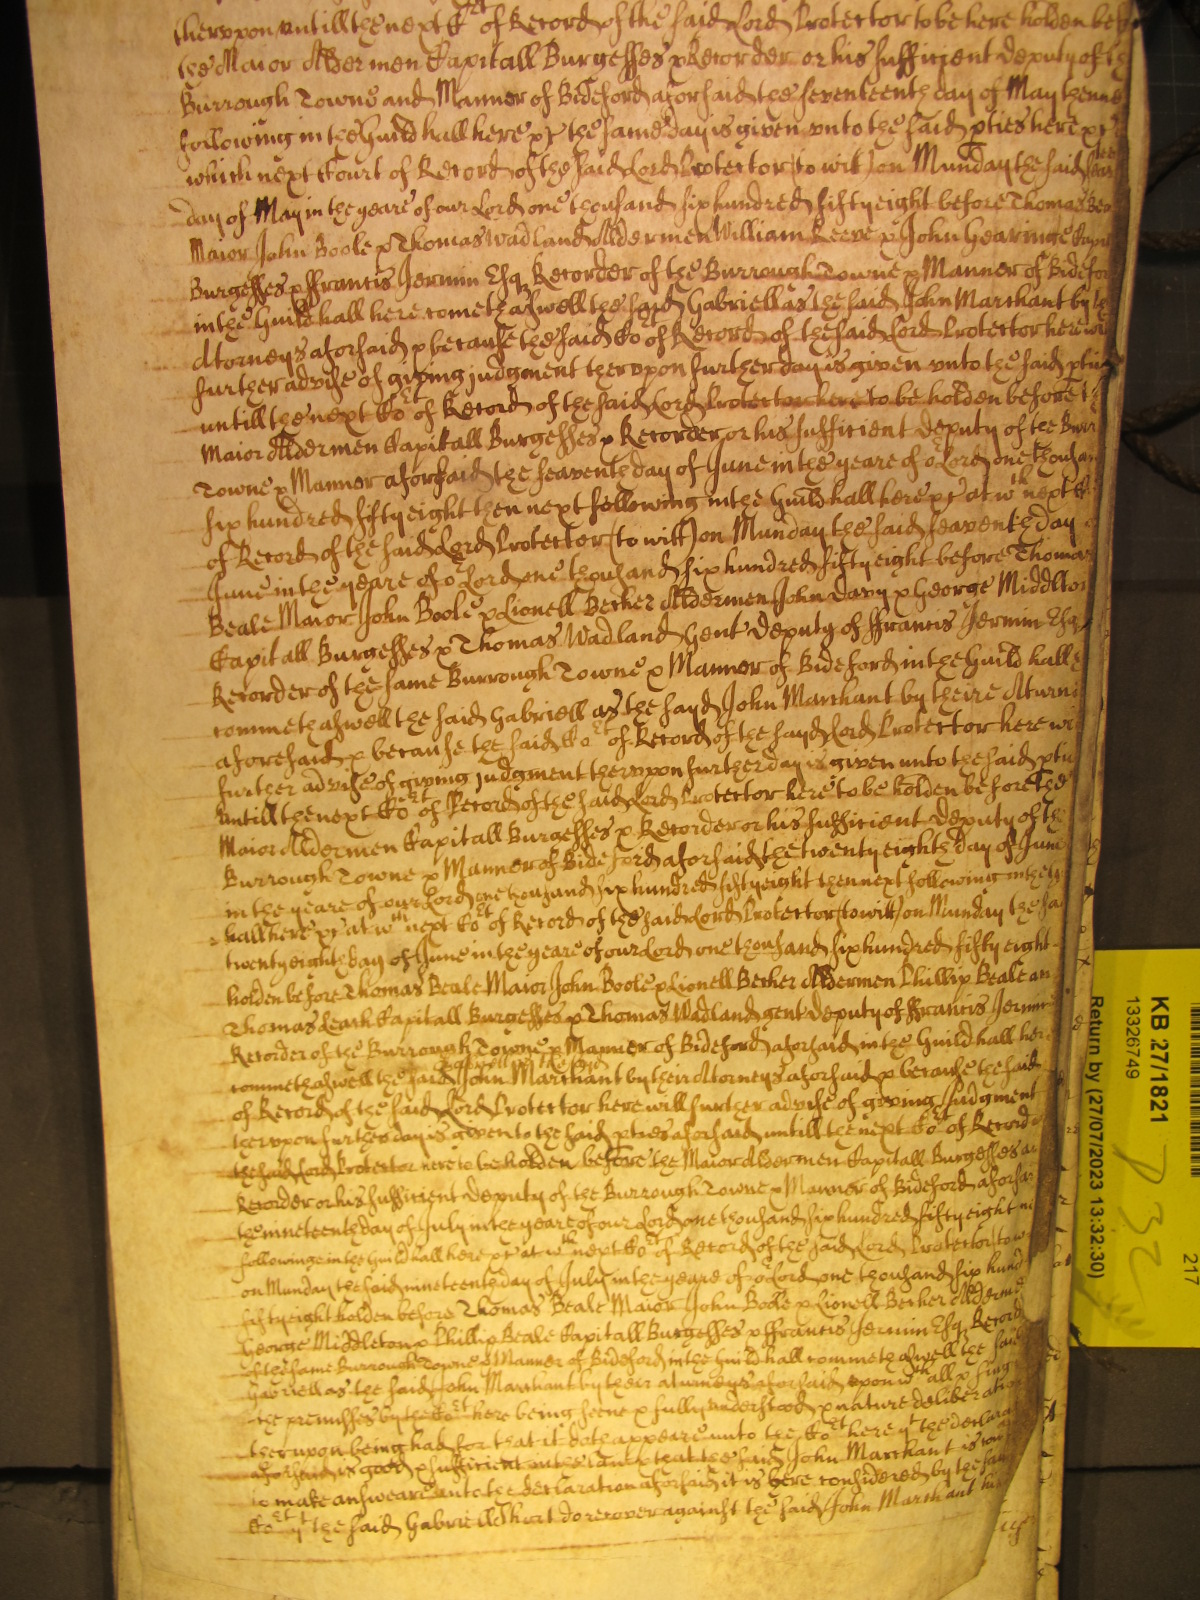 thervpon untill the next Cort of Record of the said Lord Protector to be here holden be
the Maior Aldermen Capitall Burgesses & Recorder or his sufficient deputy of
Burrough Towne and Mannor of Bideford aforsaid the seventeenth day of May then
following in the Guild hall here &c the same day is given vnto the said pties here
which next Court of Record of the said Lord Protector (to witt) on Munday the said
day of May in the yeare of our Lord one thousand six hundred fifty eight before Thomas Bea
Maior John Boole & Thomas Wadland Aldermen William Reeve & John Gearinge Capit
Burgesses & ffrancis Jermin Esq Recorder of the Burrough Towne & Mannor of Bidefor
in the Guild hall here cometh aswell the said Gabriell as the said John Marchant by
Atorneys aforsaid & because the said Cort of Record of the said Lord Protector here wi
further advise of giving judgment thervpon further day is given vnto the said pti
untill the next Cort of Record of the said Lord Protector here to be holden before t
Maior Aldermen Capitall Burgesses & Recorder or his sufficient deputy of the Burr
Towne & Mannor aforsaid the seaventh day of June in the yeare of or Lord one thousan
six hundred fifty eight then next following in the Guild hall here &c at wch next
of Record of the said Lord Protector (to witt) on Munday the said seaventh day
June in the yeare of or Lord one thousand six hundred fifty eight before Thomas
Beale Maior John Boole & Lionell Becher Aldermen John Davy & George Middlto
Capitall Burgesses & Thomas Wadland Gent deputy of ffrancis Jermin Esq
Recorder of the same Burrough Towne & Mannor of Bideford in the Guild hall
commeth aswell the said Gabriell as the sayd John Marchant by theire Aturni
aforesaid & because the said Cort of Record of the sayd Lord Protector here wi
further advise of giving judgment thervpon further day is given unto the said ptie
untill the next Cort of Record of the said Lord Protector here to be holden before the
Maior Aldermen Capitall Burgesses & Recorder or his sufficient deputy of the
Burrough Towne & Mannor of Bideford aforsaid the twenty eighth day of June
in the yeare of our Lord one thousand six hundred fifty eight then next following in the
hall here &c at wch next Cort of Record of the said Lord Protector (to witt) on Munday the sa
twenty eighth day of June in the yeare of our Lord one thousand six hundred fifty eight
holden before Thomas Beale Maior John Boole & Lionell Becher Aldermen Phillip Beale an
Thomas Leach Capitall Burgesses & Thomas Wadland gent deputy of ffrancis Jermin
Recorder of the Burrough Towne & Mannor of Bideford aforsaid in the Guild hall here
commeth aswell the said Gabriell as the said John Marchant by their Atorneys aforsaid & because the said
of Record of the said Lord Protector here will further advise of giving Judgment
thervpon further day is given to the said pties aforsaid untill the next Cort of Record
the said Lord Protector here to be holden before the Maior Aldermen Capitall Burgesses an
Recorder or his sufficient deputy of the Burrough Towne & Mannor of Bideford aforsa
the nineteenth day of July in the yeare of our Lord one thousand six hundred fifty eight
followinge in the Guild hall here &c at wch next Cort of Record of the said Lord Protector (to
on Munday the said nineteenth day of July in the yeare of or Lord one thousand six hund
fifty eight holden before Thomas Beale Maior John Boole & Lionell Becher Alderme
George Middleton & Phillip Beale Capitall Burgesses & ffrancis Jermin Esq Record
of the same Burrough Towne & Mannor of Bideford in the Guild hall commeth aswell the said
Gabriell as the said John Marchant by their aturneys aforsaid vpon wch all &
the premisses by the Cort here being seene & fully understood & mature deliberation
thervpon being had for that it doth appeare unto the Cort here yt the declara
aforsaid is good & sufficient in the law & that the said John Marchant is
to make answeare unto the declaration aforsaid it is here considered by the same
Cort yt the said Gabriell Short do recover against the said John Marchant his
KB 27/1821
13326749
Return by (27/07/2023 13:32:30)
217